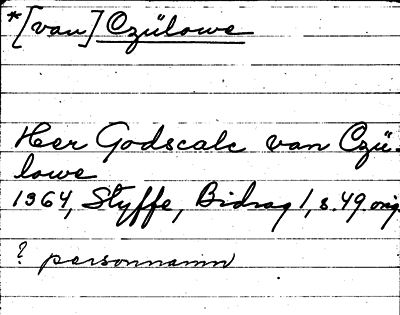 *[van] Czülowe
Her Godscalc van Czü-
lowe
1364, Styffe, Bidrag 1, s. 49 orig.
? personnamn